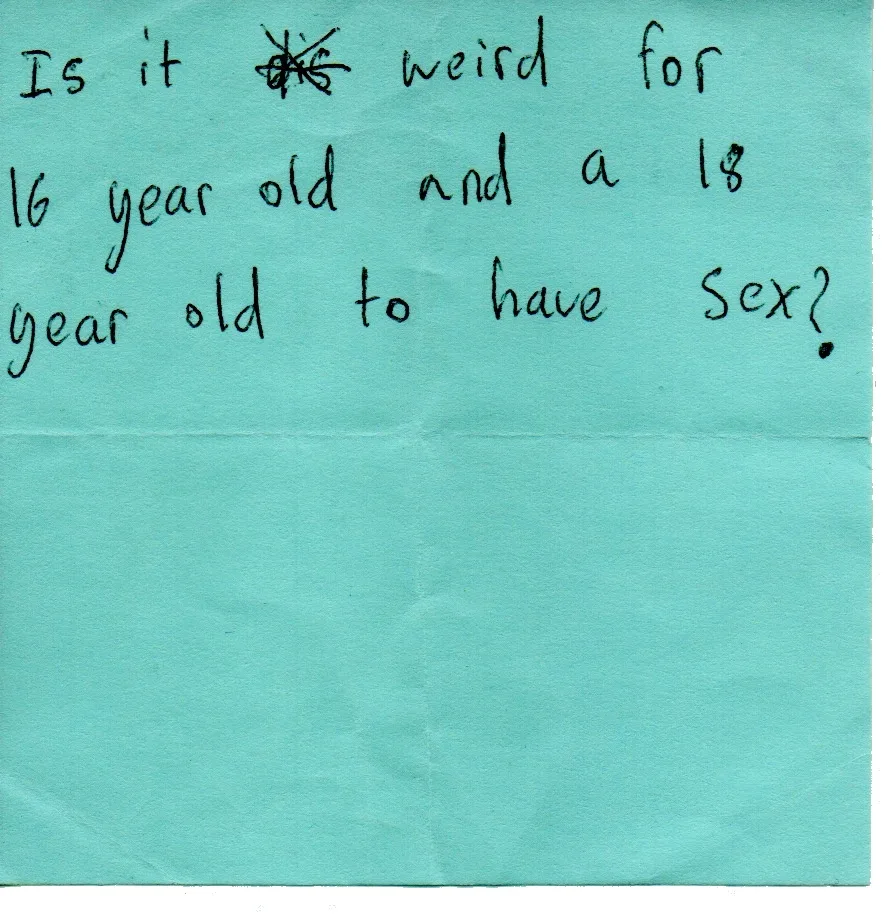 Is it weird for
16 year old and a 18
year old to have sex?